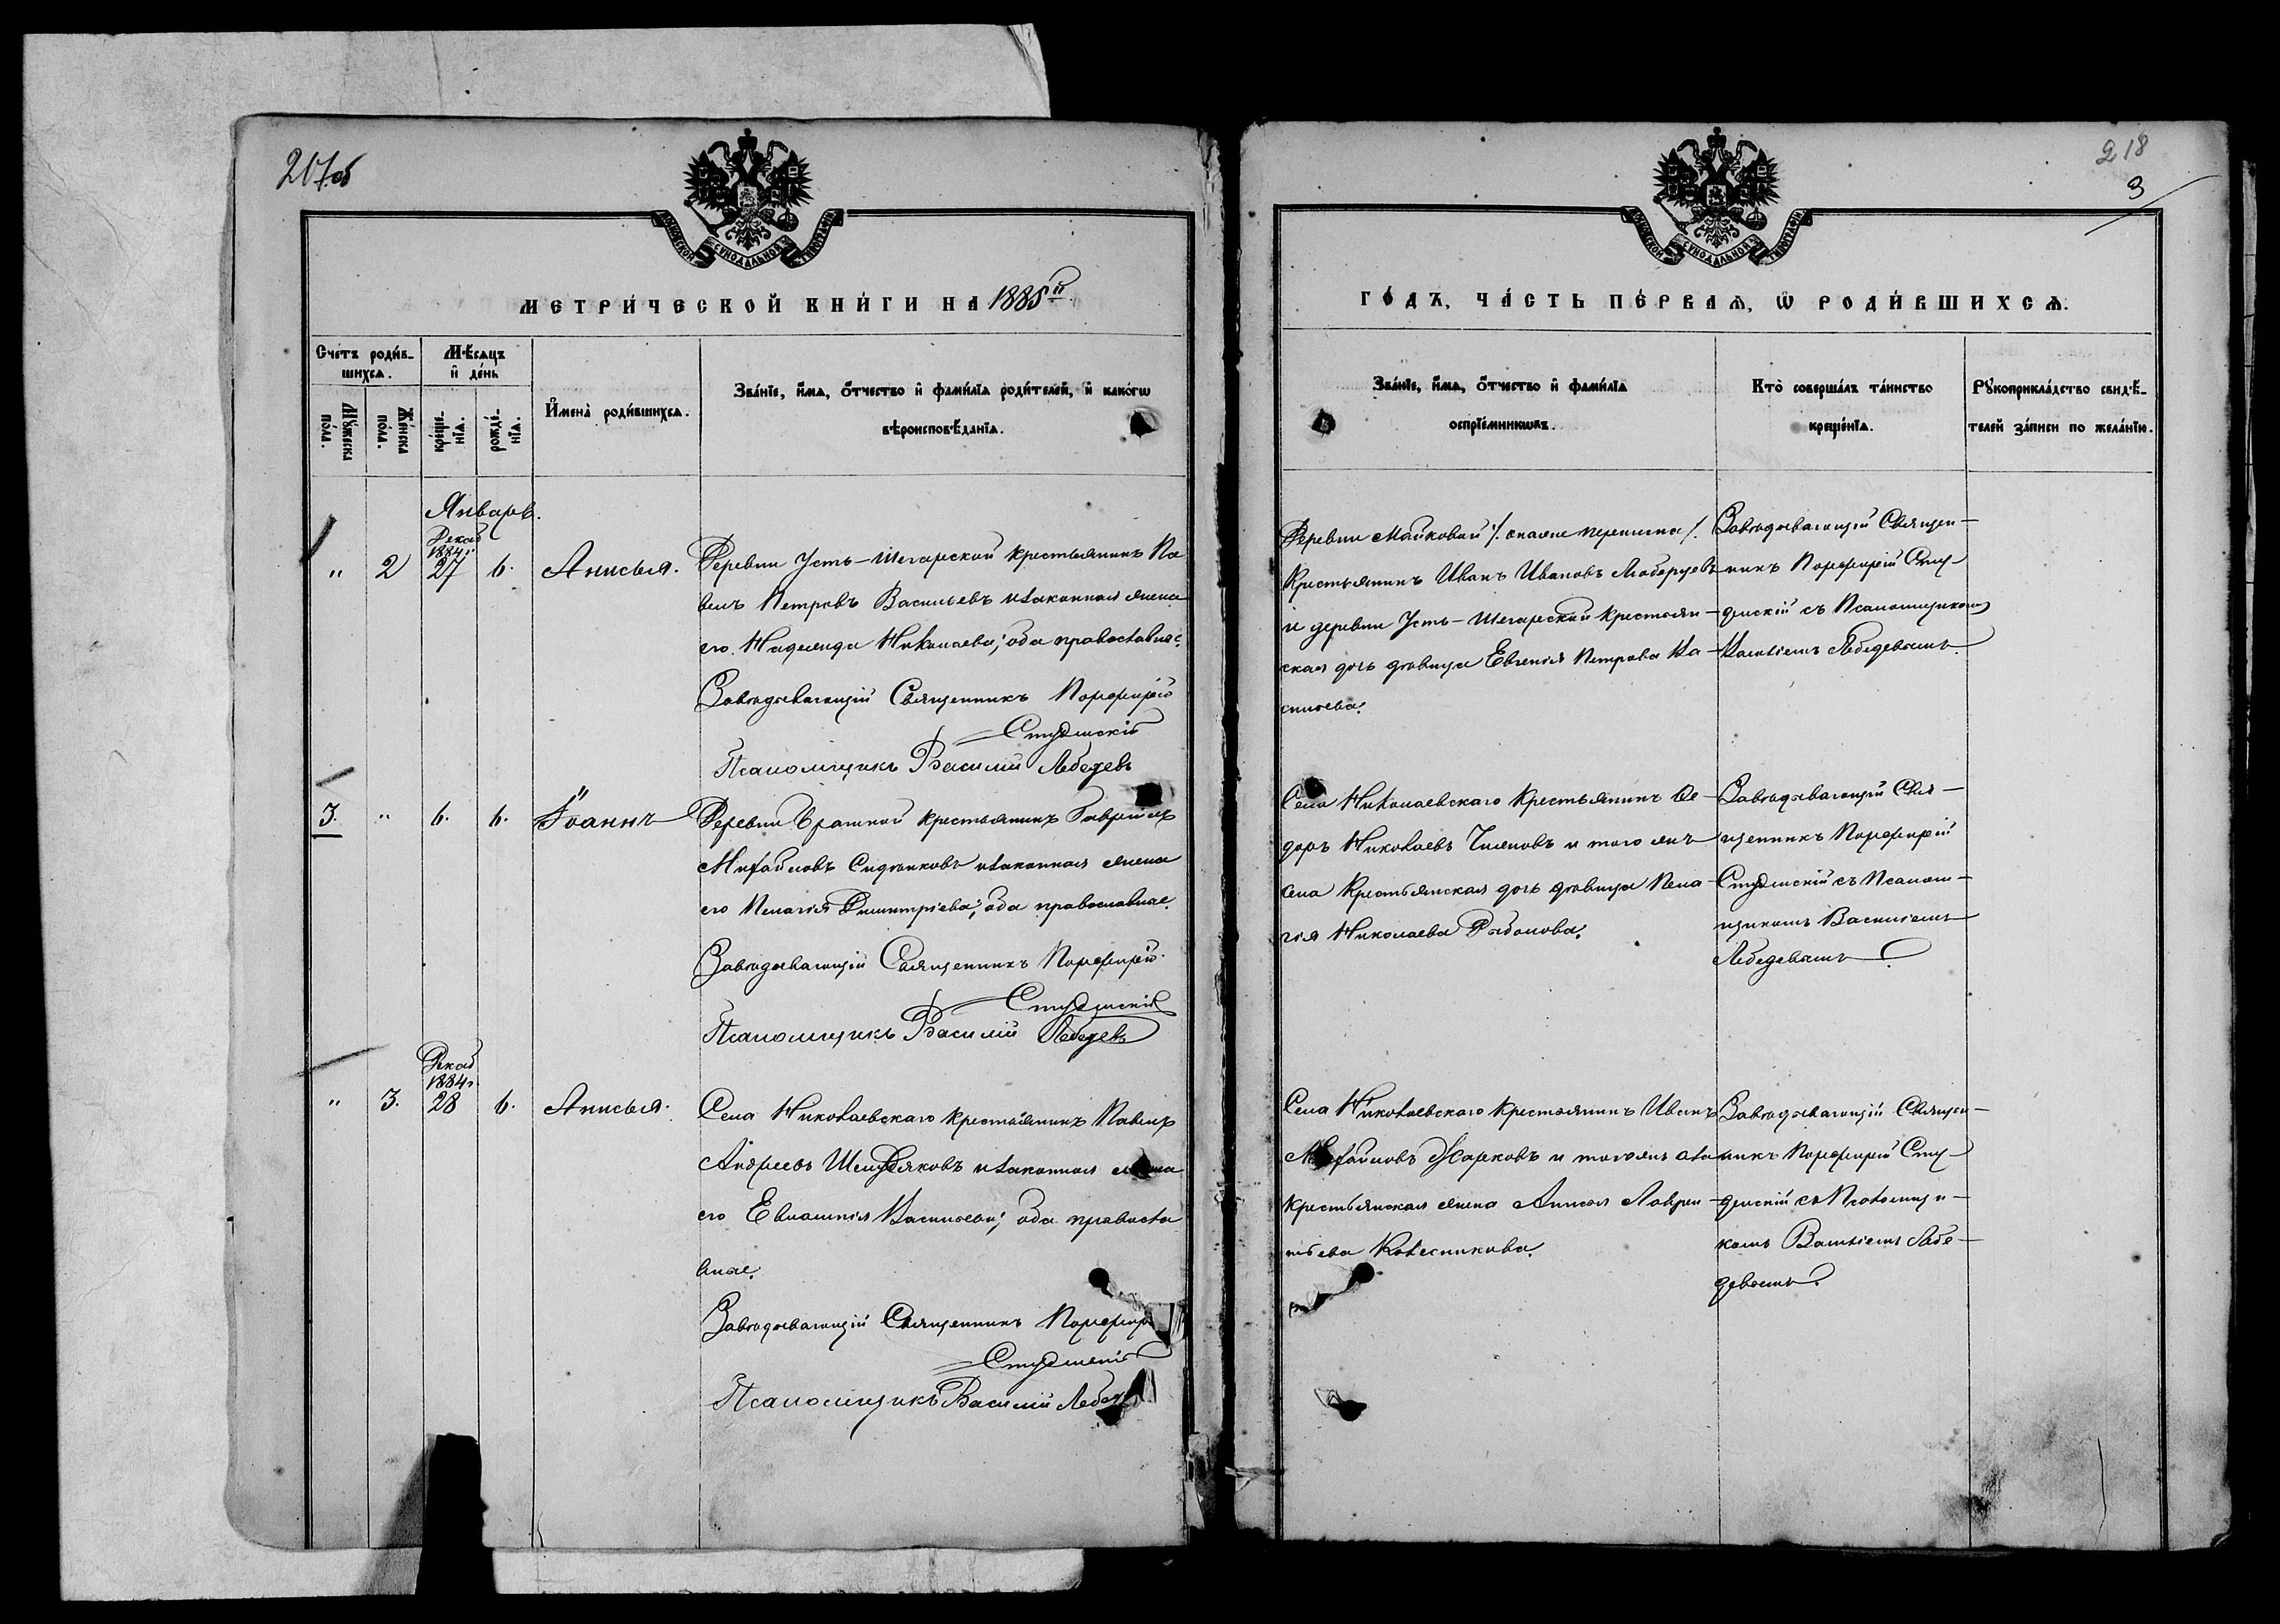 217об
МОСКОВСКОЙ СУНОДАЛЬНОЙ ТИПОГРАФІИ
МЕТРИ́ЧЕСКОЙ КНИ́ГИ НА 1885й
Счетъ роди́в-
шихся.
Мѣсяцъ
и де́нь
Мужеска пола.
Женска пола.
креще-
нія.
рожде́-
нія.
Имена̀ роди́вшихся.
Зва́ніе, и́мя, о́тчество и фами́лія роди́телей, и како́гѡ
вѣроисповѣ́данія.
Январь.
Декаб
1884 г.
" 2 27 6. Анисья.
Деревни Усть-Шегарской крестьянинъ Па
велъ Петровъ Васильевъ и законная жена
его Надежда Николаева; оба православные.
Завѣдывающій Священникъ Порфирій
Студемскій
Псаломщикъ Василій Лебедевъ
3. " 6. 6. Іоаннъ
Деревни крестьянинъ Гавріилъ
Михайловъ Сидѣнковъ и законная жена
его Пелагія Димитріева; оба православные.
Завѣдывающій Священникъ Порфирій
Студемскій
Псаломщикъ Василій Лебедевъ
Декаб
1884 г.
" 3. 28 6. Анисья.
Села Николаевскаго крестьянинъ Павелъ
Андреевъ и законная жена
его Евлампія Васильева; оба правосла
вные.
Завѣдывающій Священникъ Порфирій
Студемскій
Псаломщикъ Василій Лебедевъ
218
3
МОСКОВСКОЙ СУНОДАЛЬНОЙ ТИПОГРАФІИ
ГО́ДЪ, ЧА́СТЬ ПЕ́РВАЯ, Ѡ РОДИ́ВШИХСЯ.
Зва́ніе, и́мя, о́тчество и фами́лія
воспріе́мникѡвъ.
Кто̀ соверша́лъ та́инство
креще́нія.
Рꙋкоприкла́дство свидѣ́-
телей за́писи по жела́нію.
Деревни Майковой
Крестьянинъ Иванъ Ивановъ
и деревни Усть-Шегарской крестьян-
ская дочь дѣвица Евгенія Петрова Ва-
сильева.
Завѣдывающій Священ-
никъ Порфирій Сту-
демскій съ Псаломщикомъ
Василіемъ Лебедевымъ.
Села Николаевскаго крестьянинъ Ѳе-
доръ Николаевъ Чижновъ и того жъ
села крестьянская дочь дѣвица Пела-
гія Николаева Рыбалова.
Завѣдывающій Свя-
щенникъ Порфирій
Студемскій съ Псалом-
щикомъ Василіемъ
Лебедевымъ.
Села Николаевскаго крестьянинъ Иванъ
Михайловъ Харковъ и того жъ села
крестьянская жена Анисья Лаврен-
тьева Колесникова.
Завѣдывающій Священ-
никъ Порфирій Сту-
демскій съ Псаломщи-
комъ Василіемъ Лебе-
девымъ.